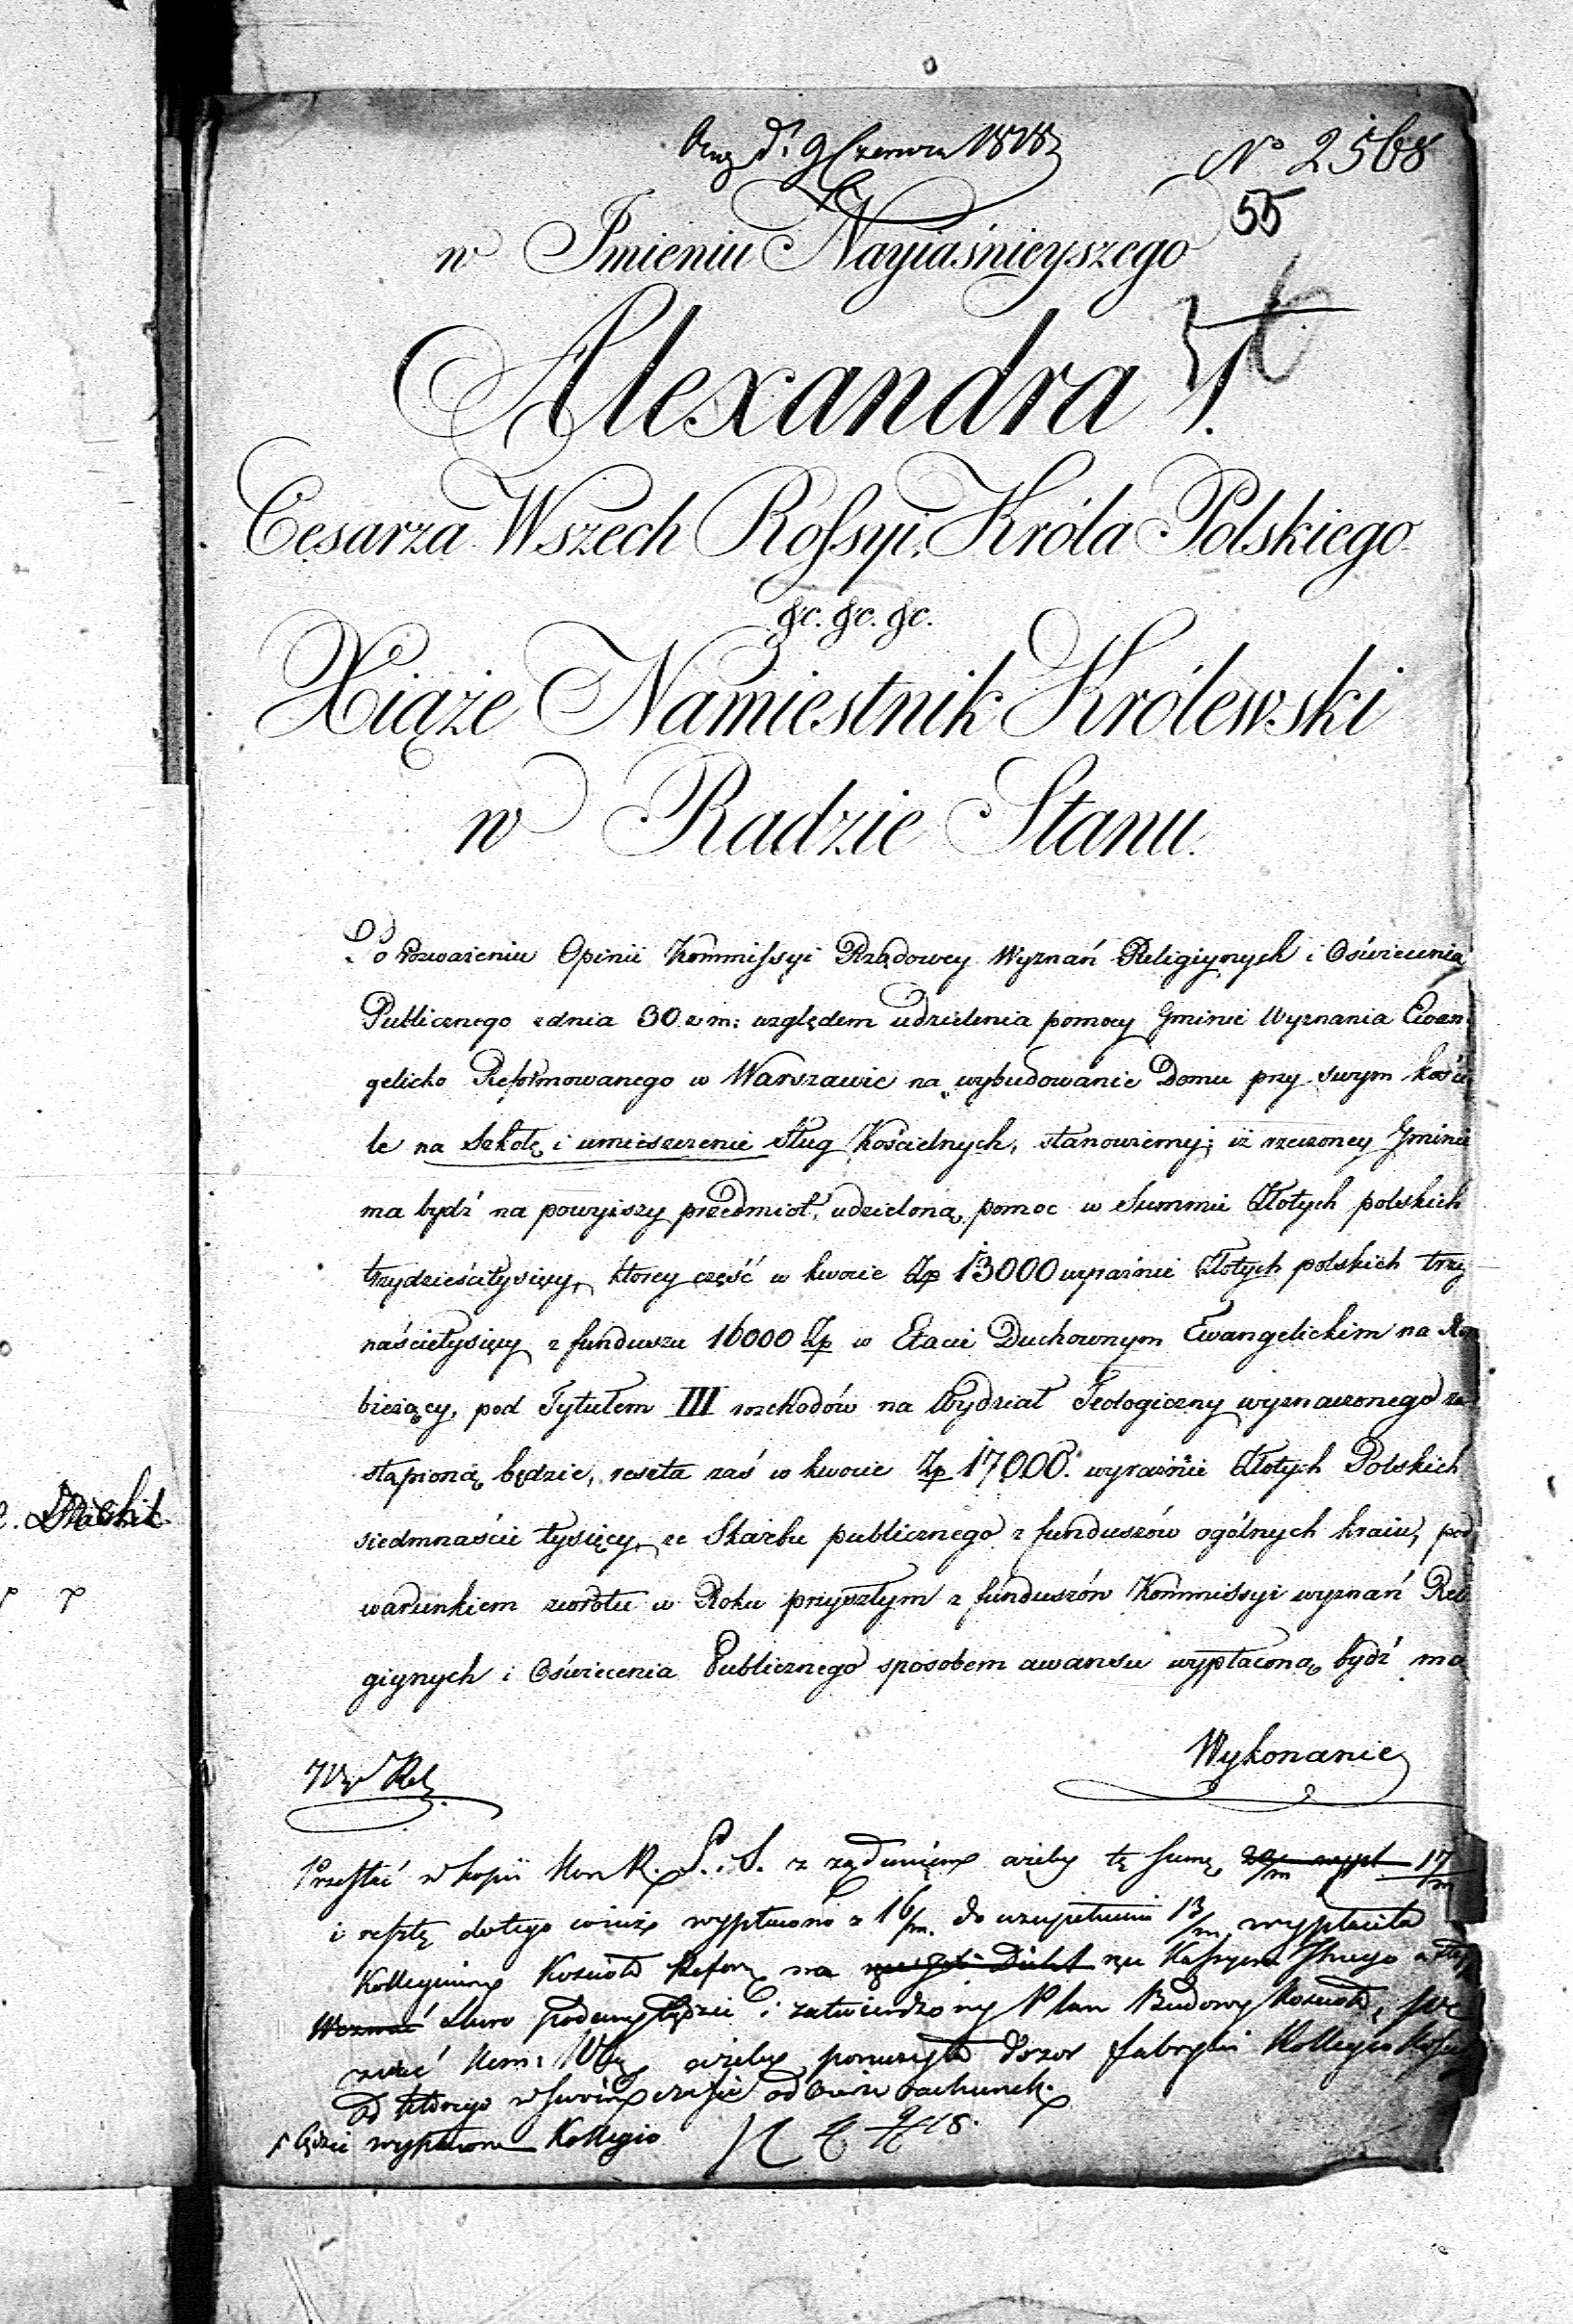 d. 9 Czerwca 1818
No 2568
55
w Imieniu Nayiaśnieyszego
Alexandra I.
Cesarza Wszech Rossyi, Króla Polskiego
&c. &c. &c.
Xiąże Namiestnik Królewski
w Radzie Stanu.
Po Rozważeniu Opinii Kommissyi Rządowey Wyznań Religiynych i Oświecenia
Publicznego z dnia 30 z. m: względem udzielenia pomocy Gminie Wyznania Ewan
gelicko Reformowanego w Warszawie na wybudowanie Domu przy swym kości
le na Szkołę i umieszczenie sług Kościelnych, stanowiemy; iż rzeczoney Gminie
ma bydź na powyższy przedmiot, udzieloną pomoc w Summie Złotych polskich
trzydzieścitysięcy, ktorey część w kwocie Zp 13000 wyraźnie Złotych polskich trzy
naścietysięcy z funduszu 16000 Zp w Etacie Duchownym Ewangelickim na Rok
bieżący, pod Tytułem III rozchodów na Wydział Teologiczny wyznaczonego za
stąpioną będzie, reszta zaś w kwocie Zp 17000. wyraźnie Złotych Polskich
siedmnaście tysięcy, ze Skarbu publicznego z funduszów ogólnych kraiu, pod
warunkiem zwrotu w Roku przyszłym z funduszów Kommissyi wyznań Reli
giynych i Oświecenia Publicznego sposobem awansu wypłaconą bydź ma
Wykonanie
Przesłać w kopii R. P. i S. z żądaniem ażeby tę summę 17/m
i resztę do tego wypłacono z 16/m. do uzupełnienia 13/m wypłaciła
Kollegium Kościoła Reform na
i zatwierdzony Plan Budowy Kościoła,
ażeby dozor fabryki Kollegio
od którego w swoim czasie odbierze rachunek.
będzie wypłacone Kollegio
9/6 18.